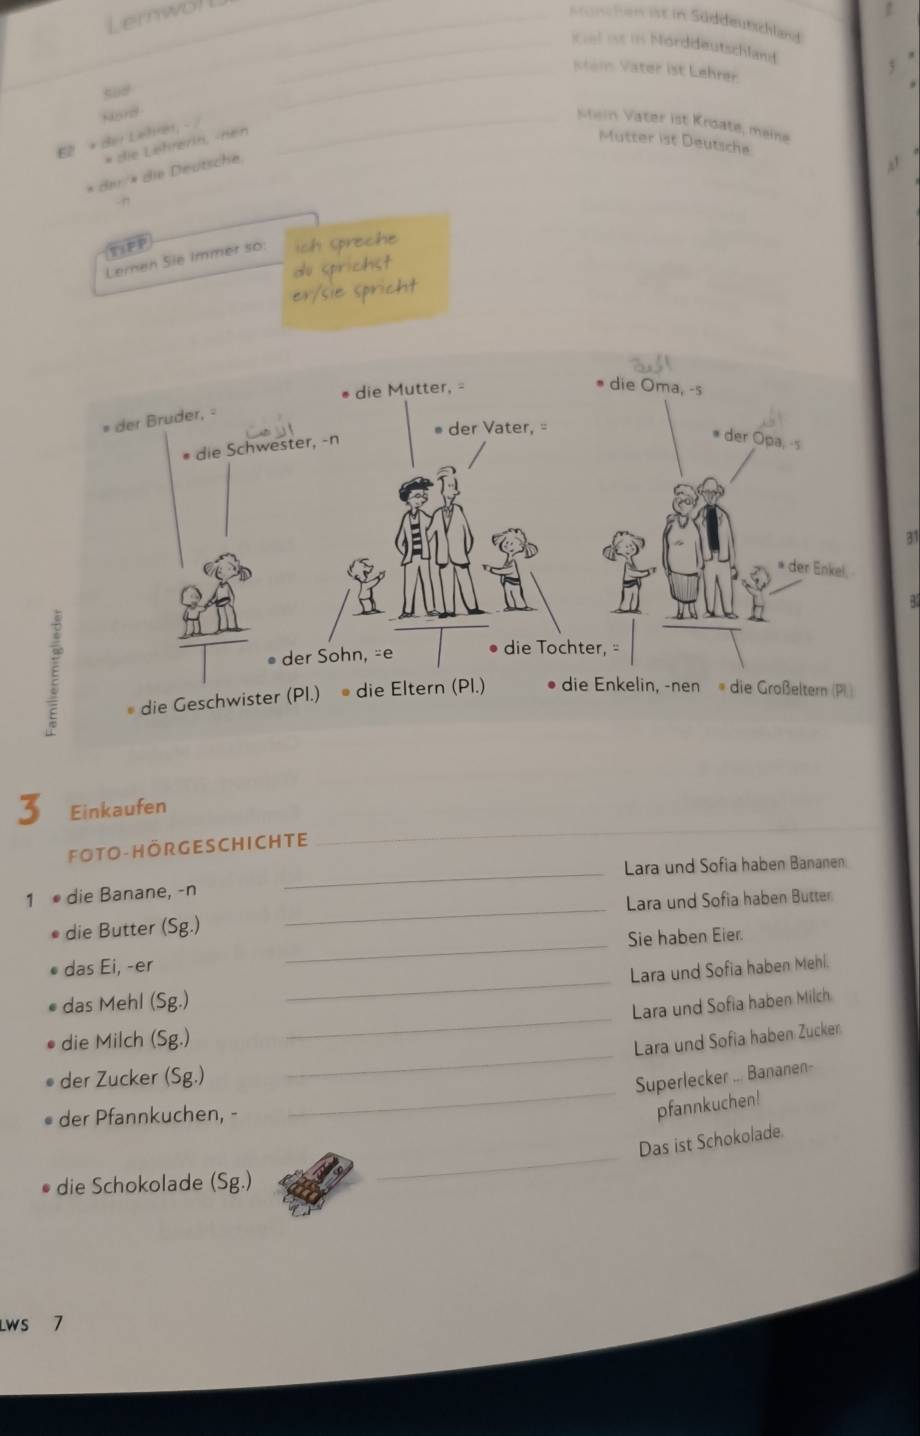 Lernwort
München ist in Süddeutschland
Kiel ist in Norddeutschland
Mein Vater ist Lehrer
Süd-
Nord-
E2 • der Lehrer, - /
• die Lehrerin, -nen
Mein Vater ist Kroate, meine
Mutter ist Deutsche
• der/• die Deutsche,
-n
TIPP
Lernen Sie immer so:
ich spreche
du sprichst
er/sie spricht
• der Bruder, ⸚
• die Schwester, -n
• die Mutter, ⸚
• der Vater, ⸚
• die Oma, -s
• der Opa, -s
• der Enkel, -
• der Sohn, ⸚e
• die Tochter, ⸚
• die Geschwister (Pl.)
• die Eltern (Pl.)
• die Enkelin, -nen
• die Großeltern (Pl.)
Familienmitglieder
31
3 Einkaufen
FOTO-HÖRGESCHICHTE
1 • die Banane, -n Lara und Sofia haben Bananen.
• die Butter (Sg.) Lara und Sofia haben Butter.
• das Ei, -er Sie haben Eier.
• das Mehl (Sg.) Lara und Sofia haben Mehl.
• die Milch (Sg.) Lara und Sofia haben Milch.
• der Zucker (Sg.) Lara und Sofia haben Zucker.
• der Pfannkuchen, - Superlecker ... Bananen-
pfannkuchen!
• die Schokolade (Sg.) Das ist Schokolade.
LWS 7